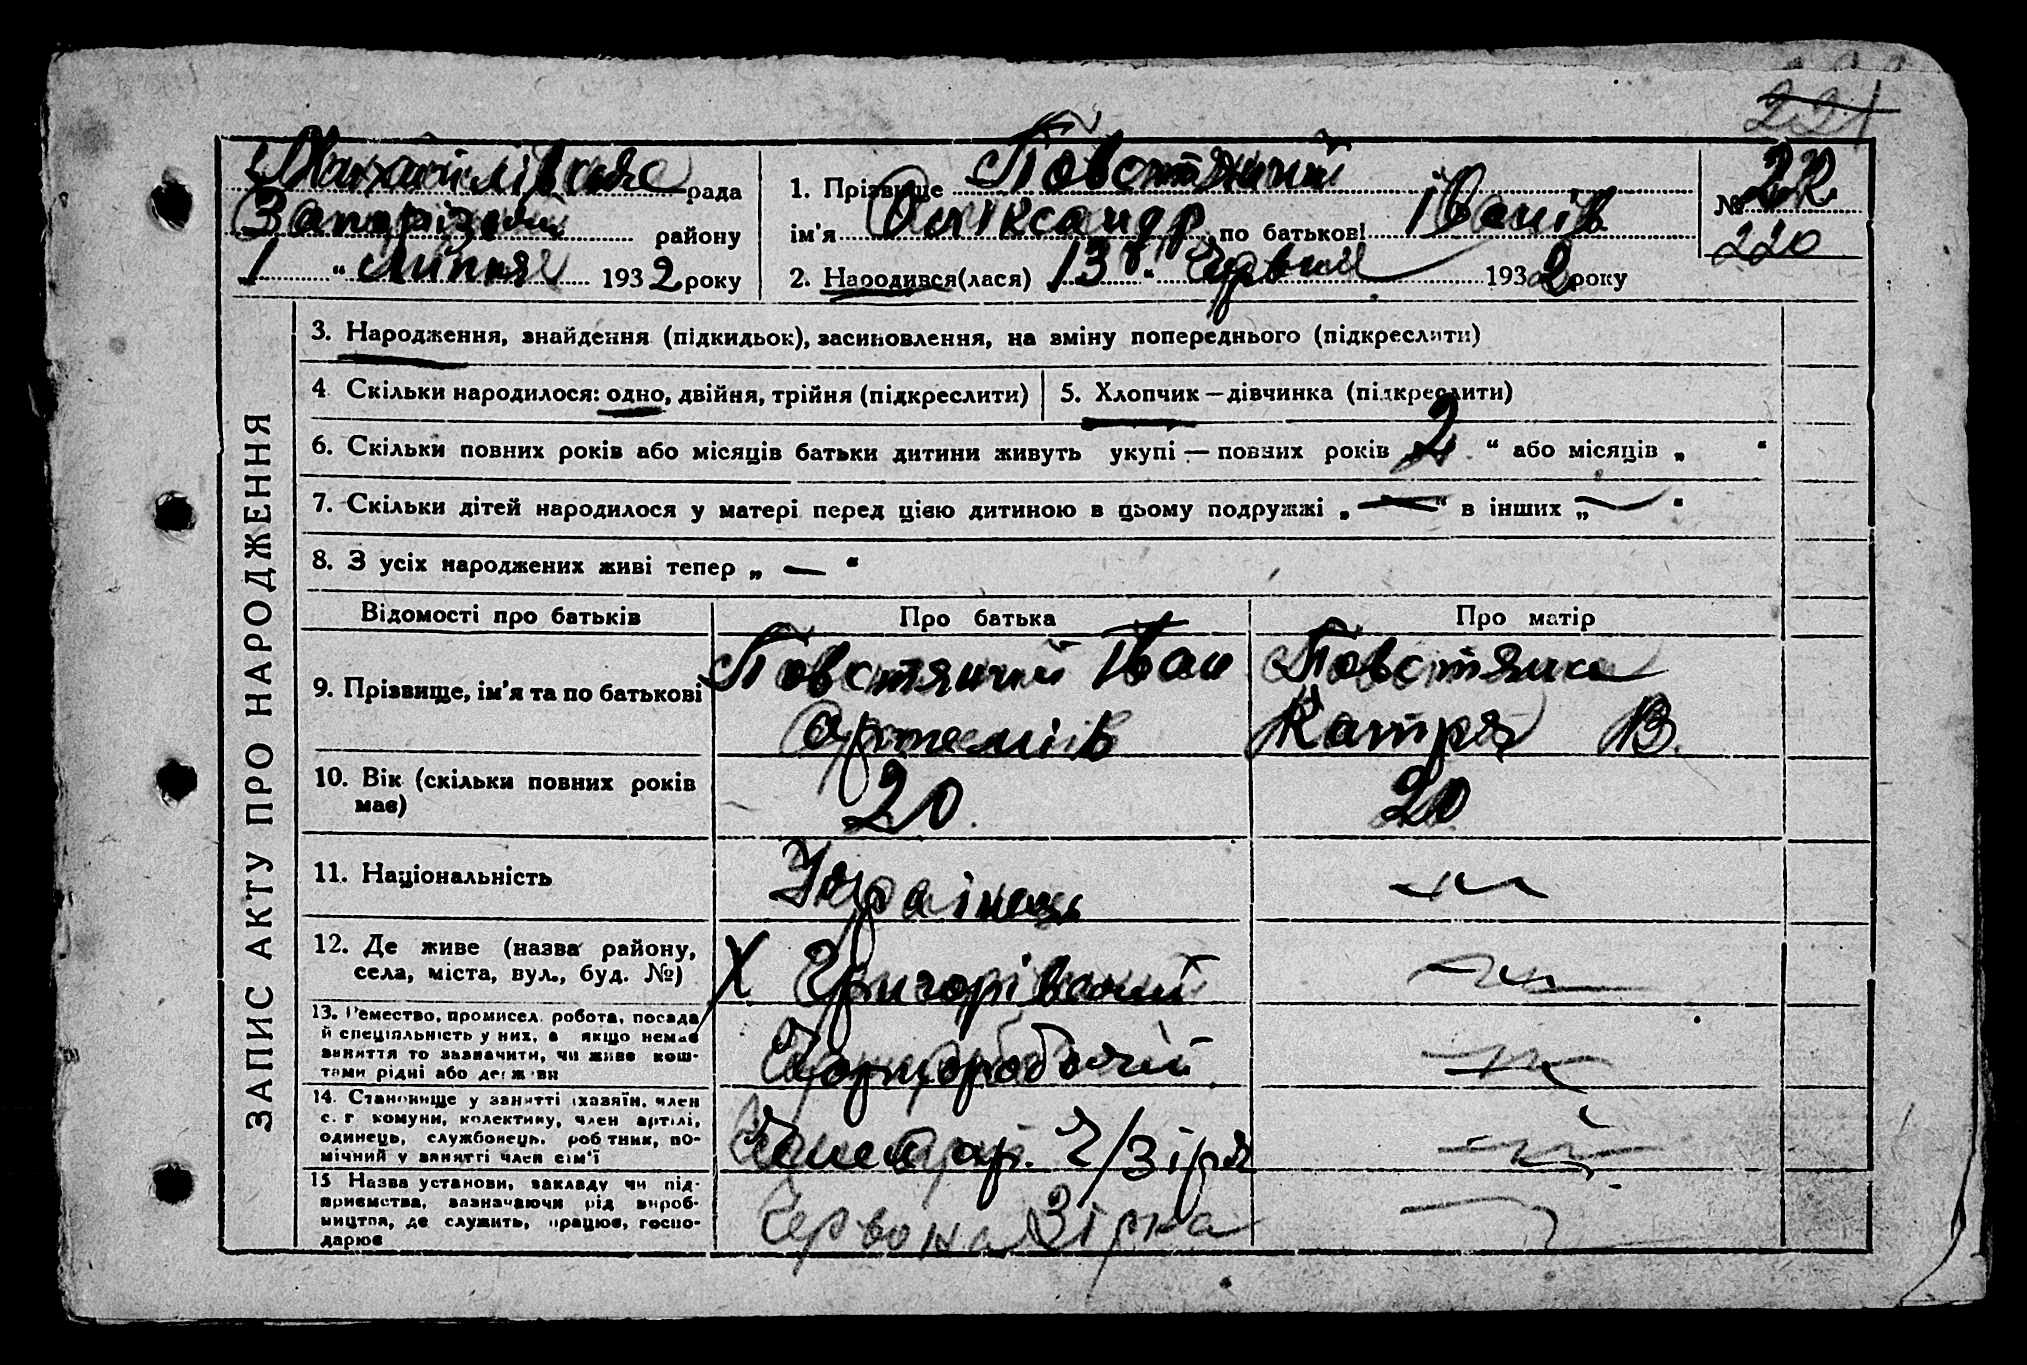 221
Михайлівська рада
Запорізьк району
1 " липня 1932 року
1. Прізвище Повстяний
ім'я Олександр по батькові Іванів
2. Народився(лася) 13 " Червня 1932 року
№ 22
220
ЗАПИС АКТУ ПРО НАРОДЖЕННЯ
3. Народження, знайдення (підкидьок), засиновлення, на зміну попереднього (підкреслити)
4 Скільки народилося: одно, двійня, трійня (підкреслити)
5. Хлопчик — дівчинка (підкреслити)
6. Скільки повних років або місяців батьки дитини живуть укупі — повних років 2 " або місяців „ "
7. Скільки дітей народилося у матері перед цією дитиною в цьому подружжі „ — " в інших „ — "
8. З усіх народжених живі тепер „ — "
Відомості про батьків
Про батька
Про матір
9. Прізвище, ім'я та по батькові
Повстяний Іван
Артемів
Повстяна
Катря В.
10. Вік (скільки повних років
має)
20
20
11. Національність
Українець
— " —
12. Де живе (назва району,
села, міста, вул., буд. №)
Х Григорівський
— " —
13. Ремество, промисел, робота, посада
й спеціяльність у них, а якщо немає
заняття то зазначити, чи живе кош-
тами рідні або держави
Чорноробочий
— " —
14. Становище у занятті (хазяїн, член
с. г. комуни, колективу, член артілі,
одинець, службовець, робітник, по-
мічний у занятті член сім'ї
Член ар. Ч/Зіря
— " —
15 Назва установи, закладу чи під-
приємства, зазначаючи рід вироб-
ництва, де служить, працює, госпо-
дарює
Червона Зірка